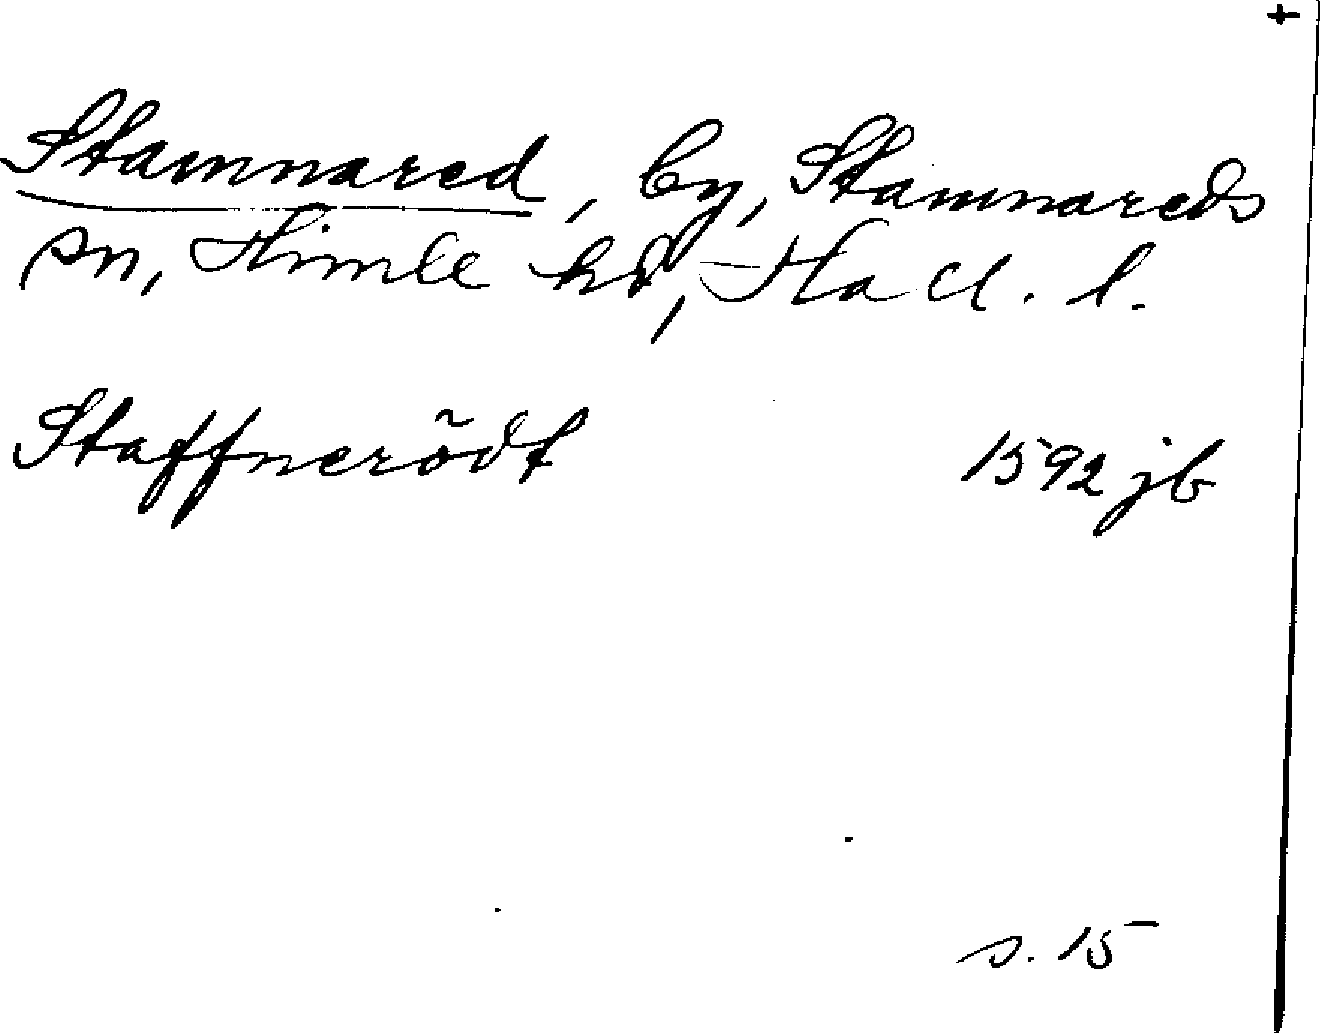 +
Stamnared, by, Stamnareds
sn, Himle hd, Hall. l.
Staffnerödt 1592 jb
s. 15